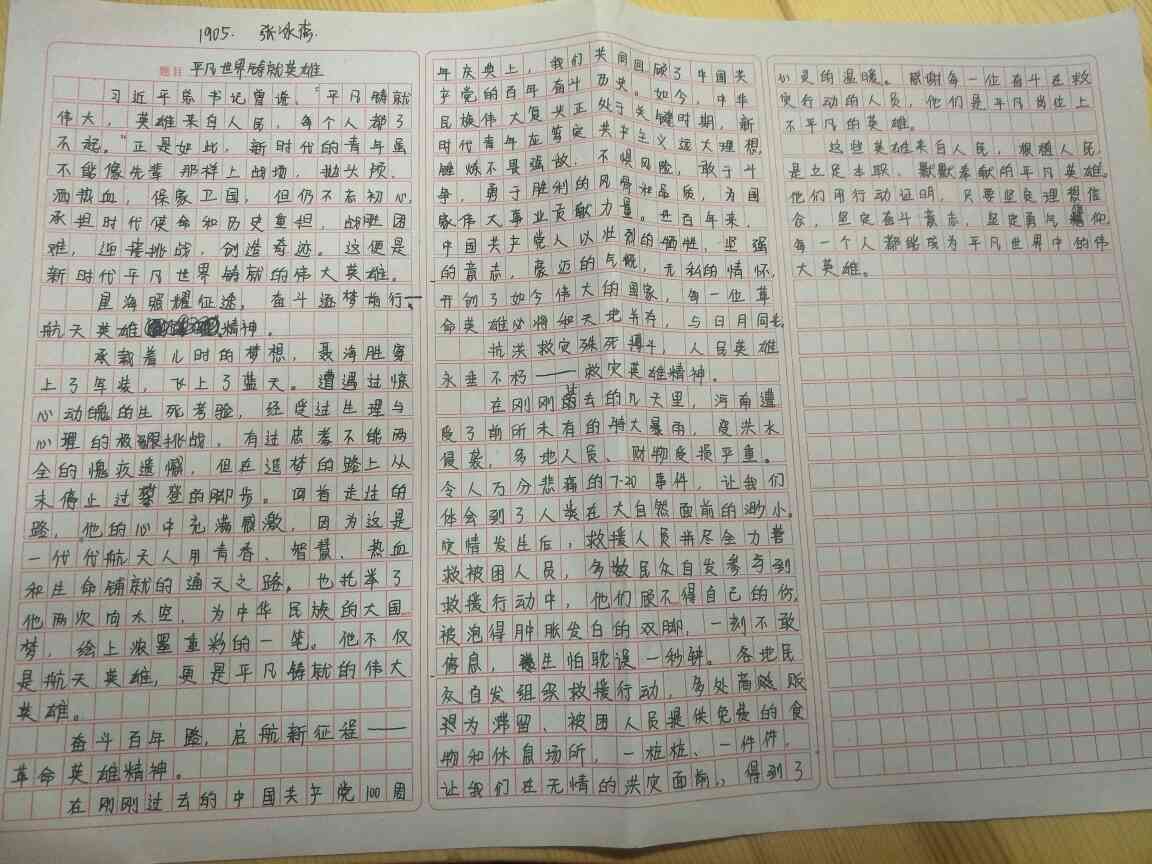 1905. 张冰
题目 平凡世界铸就英雄
习近平总书记曾说、“平凡铸就
伟大，英雄来自人民，每个人都了
不起。”正是如此，新时代的青年虽
不能像先辈那样上战场，抛头颅，
洒热血，保家卫国，但仍不忘初心，
承担时代使命和历史重担，战胜困
难，迎接挑战，创造奇迹。这便是
新时代平凡世界铸就的伟大英雄。
星海照耀征途，奋斗逐梦前行一
航天英雄精神。
承载着儿时的梦想，聂海胜穿
上了军装，飞上了蓝天。遭遇过惊
心动魄的生死考验，经受过生理与
心理的极限挑战，有过忠孝不能两
全的愧疚遗憾，但在追梦的路上从
未停止过攀登的脚步。回首走过的
路，他的心中充满感激，因为这是
一代代航天人用青春、智慧、热血
和生命铺就的通天之路。也托举了
他两次向太空，为中华民族的大国
梦，绘上浓墨重彩的一笔。他不仅
是航天英雄，更是平凡铸就的伟大
英雄。
奋斗百年路，启航新征程——
革命英雄精神。
在刚刚过去的中国共产党100周
年庆典上，我们共同回顾了中国共
产党的百年奋斗历史。如今，中华
民族伟大复兴正处于关键时期，新
时代青年应笃定共产主义远大理想，
锤炼不畏强敌，不惧风险，敢于斗
争，勇于胜利的风骨和品质，为国
家伟大事业贡献力量。进百年来，
中国共产党人以壮烈的牺牲，坚强
的意志，豪迈的气慨，无私的情怀，
开创了如今伟大的国家，每一位革
命英雄必将和天地并存，与日月同老
抗洪救灾殊死搏斗，人民英雄
永垂不朽——救灾英雄精神。
在刚刚过去的几天里，河南遭
受了前所未有的特大暴雨，受洪水
侵袭，多地人员、财物受损严重。
令人万分悲痛的7·20事件，让我们
体会到了人类在大自然面前的渺小。
灾情发生后，救援人员拼尽全力营
救被困人员，多数民众自发参与到
救援行动中，他们顾不得自己的伤，
被泡得肿胀发白的双脚，一刻不敢
停息，生怕耽误一秒钟。各地民
众自发组织救援行动，多处商贩
为滞留、被困人员提供免费的食
物和休息场所，一桩桩、一件件，
让我们在无情的洪灾面前，得到了
心灵的温暖。感谢每一位奋斗在救
灾行动的人员，他们是平凡岗位上
不平凡的英雄。
这些英雄来自人民，根植人民，
是立足本职、默默奉献的平凡英雄。
他们用行动证明，只要坚定理想信
念，坚定奋斗意志，坚定勇气信仰，
每一个人都能成为平凡世界中的伟
大英雄。